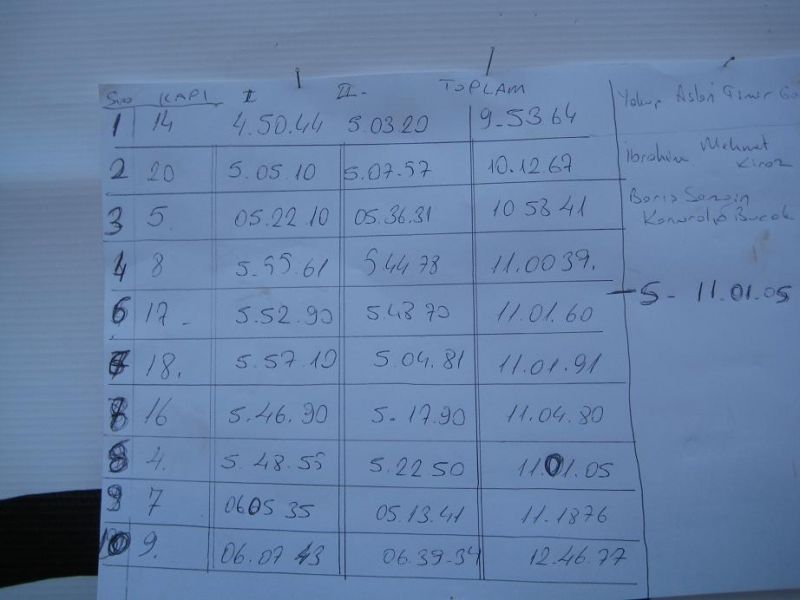 Sıra KAPI I II- TOPLAM
1 14 4.50.44 5.03 20 9-53 64
2 20 5.05.10 5.07.57 10.12.67
3 5. 05.22.10 05.36.31 10 58 41
4 8 5.55.61 5 44 78 11.00 39.
6 17- 5.52.90 548 70 11.01.60
7 18. 5.57.10 5.04.81 11.01.91
8 16 5.46.90 5-17.90 11.04.80
8 4. 5.48.55 5.22 50 1101.05
9 7 0605 35 05.13.41 11.1876
10 9. 06.07 43 06.39.34 12.46.77
Yakup Aslan
İbrahim Mehmet
Kiraz
Barış
Burak
5- 11.01.05